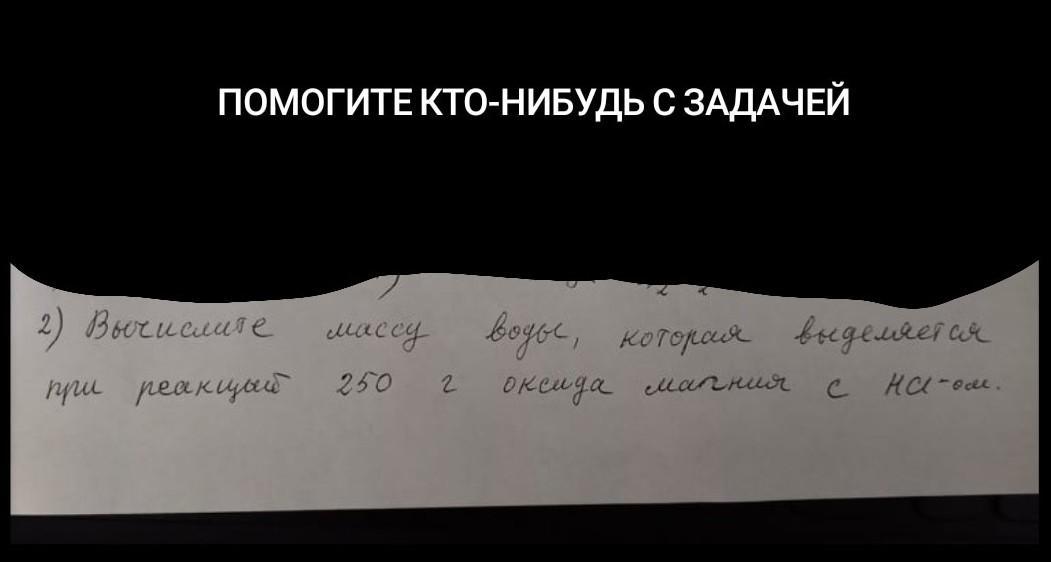 ПОМОГИТЕ КТО-НИБУДЬ С ЗАДАЧЕЙ
2) Вычислите массу воды, которая выделяется
при реакций 250 г оксида магния с HCl-ом.